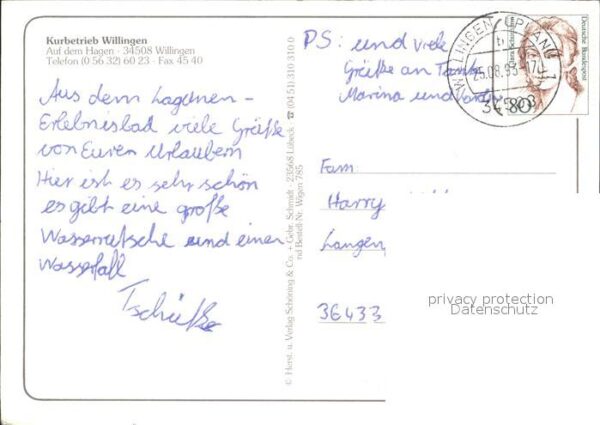 Kurbetrieb Willingen
Auf dem Hagen · 34508 Willingen
Telefon (0 56 32) 60 23 - Fax 45 40
Aus dem Lagunen-
Erlebnisbad viele Grüße
von Euren Urlaubern
Hier ist es sehr schön
es gibt eine große
Wasserrutsche und einen
Wasserfall
Tschüße
© Herst. u. Verlag Schöning & Co. + Gebr. Schmidt · 23568 Lübeck ☎ (04 51) 310 310 0
nd Bestell-Nr. Wigen 785
PS: und viele
Grüße an Tante
Marina und
WILLINGEN, UPLAND 1
25.08.93-17
34508
80
Deutsche Bundespost
Fam:
Harry
Langen
36433
privacy protection
Datenschutz